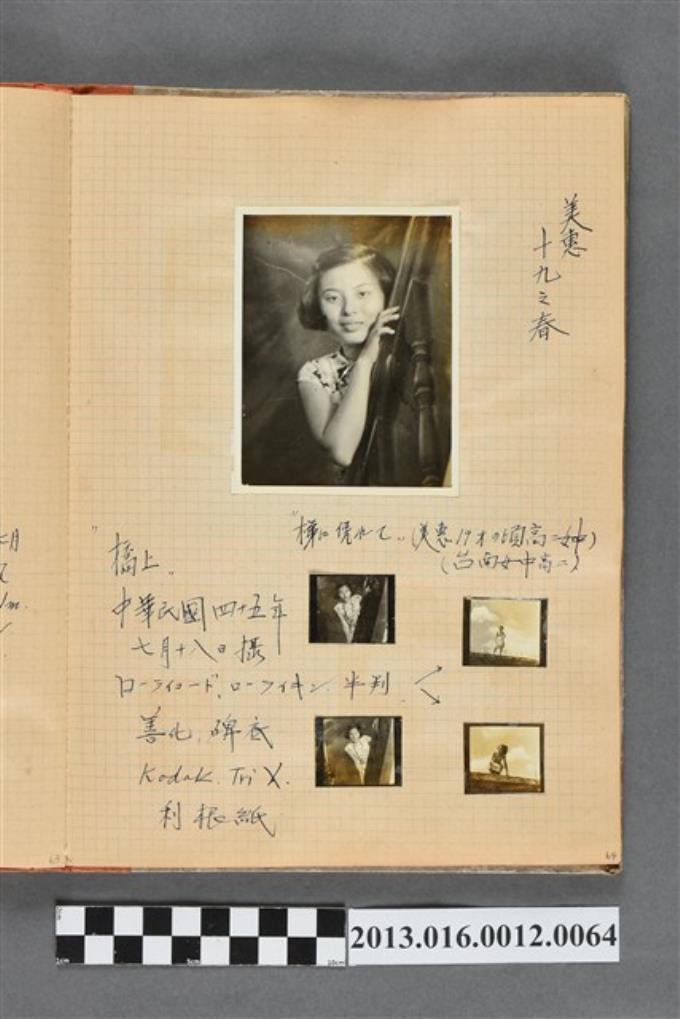 美惠
十九之春
"梯に凭れて" (美惠19才の頃高二女中)
(台南女中高二)
"橋上"
中華民國四十五年
七月十八日攝
ローライコード、ローライキン、半判
善化、碑底
Kodak. Tri X.
利根紙
63
64
2013.016.0012.0064